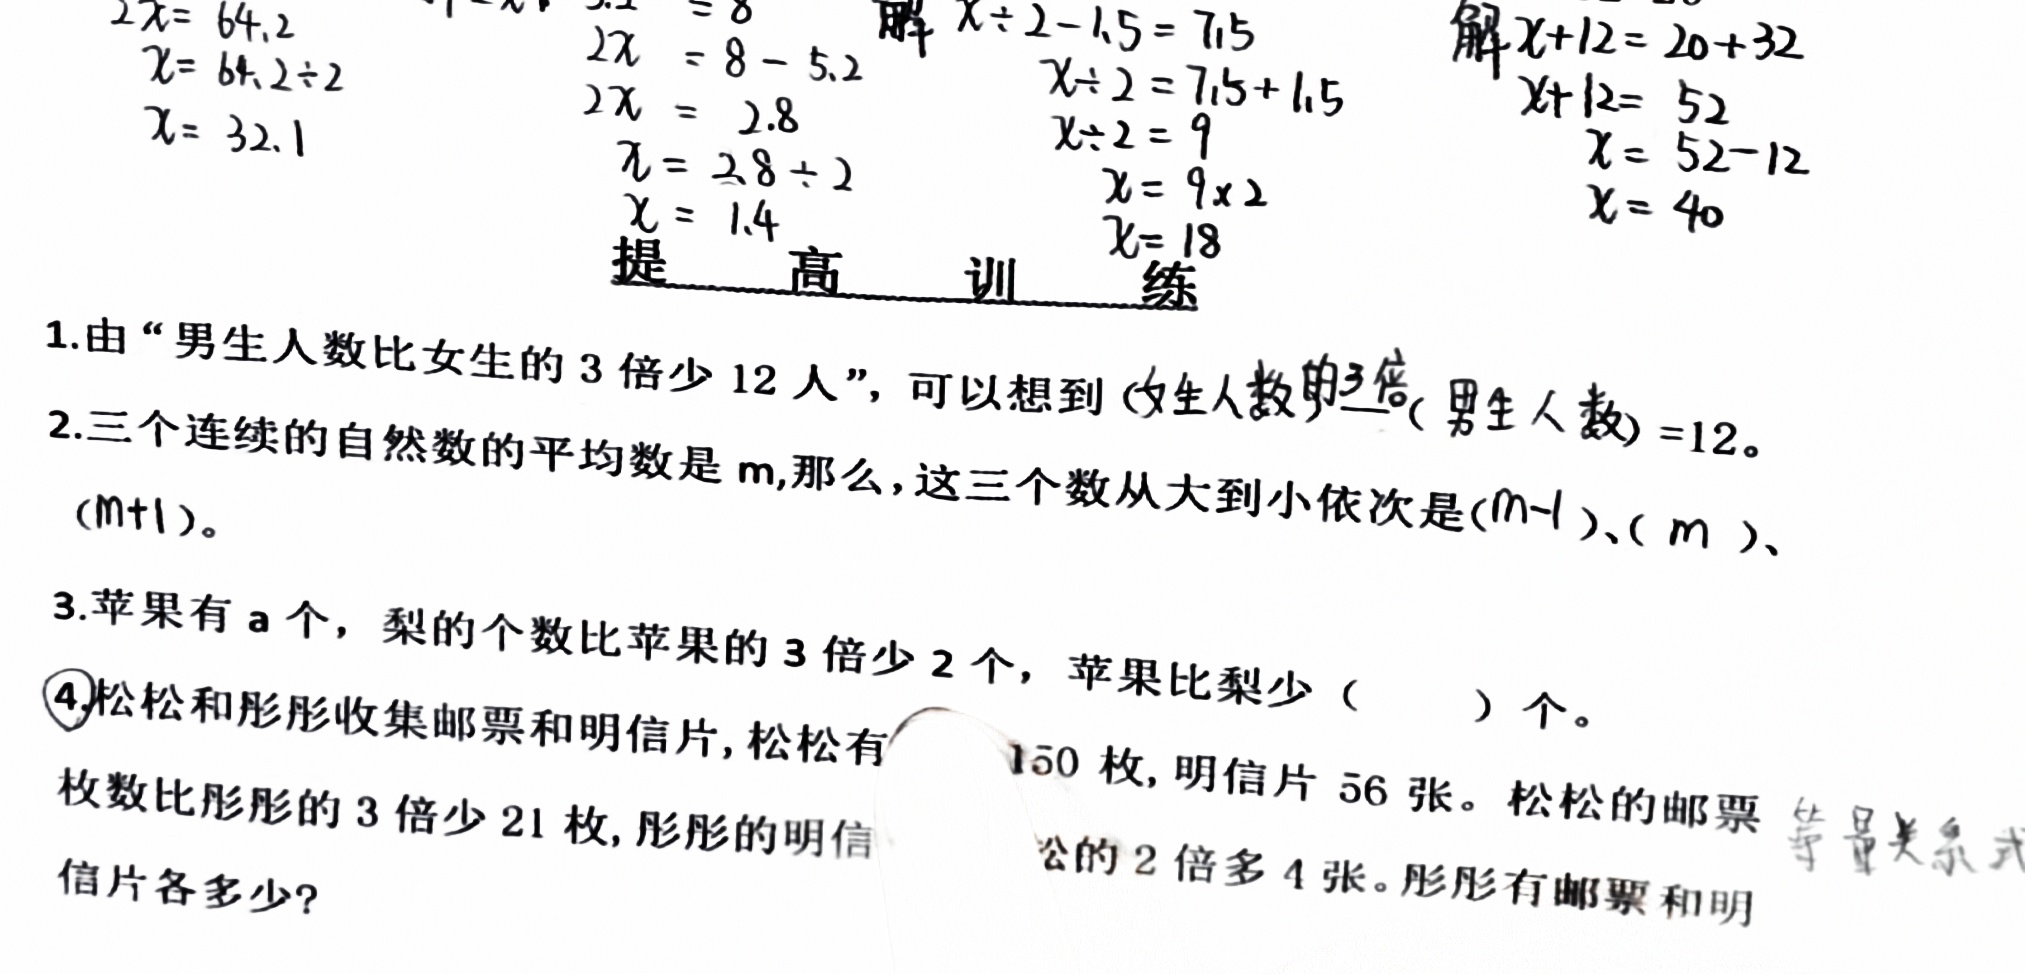 2x= 64.2
x= 64.2÷2
x= 32.1
= 8
2x = 8-5.2
2x = 2.8
x= 2.8÷2
x= 1.4
解 x÷2-1.5=7.5
x÷2=7.5+1.5
x÷2=9
x=9×2
x=18
解 x+12=20+32
x+12= 52
x= 52-12
x= 40
提高训练
1.由“男生人数比女生的 3 倍少 12 人”，可以想到 (女生人数的3倍)—(男生人数) =12。
2.三个连续的自然数的平均数是 m,那么,这三个数从大到小依次是(m-1)、( m )、
(m+1)。
3.苹果有 a 个，梨的个数比苹果的 3 倍少 2 个，苹果比梨少（ ）个。
4.松松和彤彤收集邮票和明信片,松松有 150 枚,明信片 56 张。松松的邮票
枚数比彤彤的 3 倍少 21 枚,彤彤的明信 松的 2 倍多 4 张。彤彤有邮票和明 等量关系式
信片各多少?